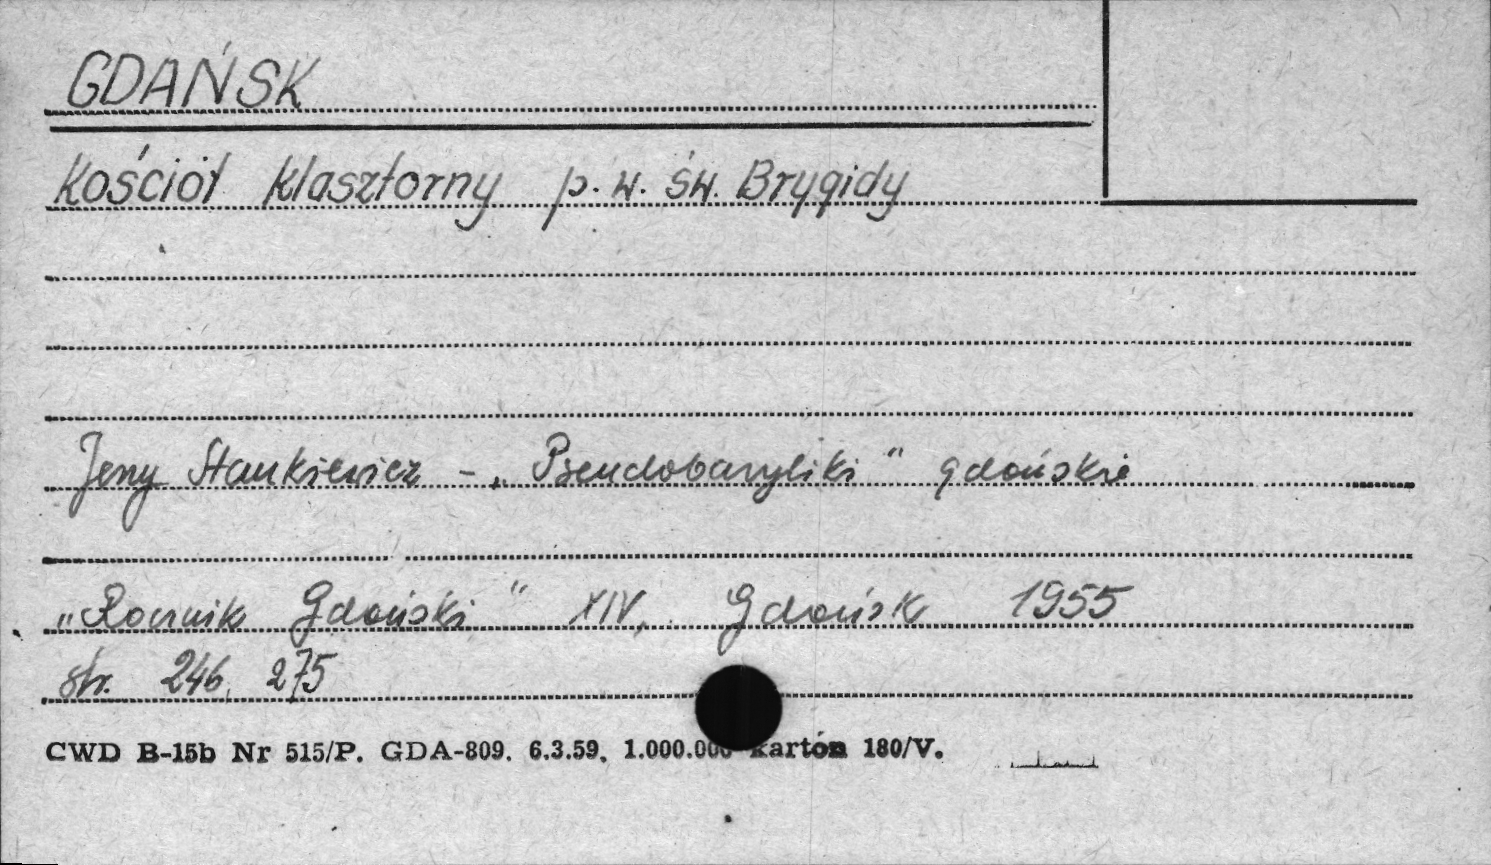 GDAŃSK
Kościół klasztorny p.w. św. Brygidy
Jerzy Stankiewicz - „Pseudobazyliki" gdańskie
„Rocznik Gdański" XIV, Gdańsk 1955
str. 246, 275
CWD B-15b Nr 515/P. GDA-809. 6.3.59. 1.000.000 karton 180/V.